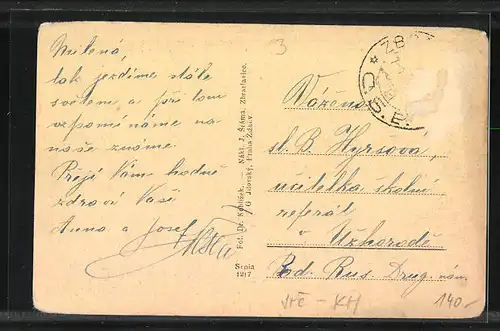 Milená,
tak jezdíme stále
světem a při tom
vzpomínáme na
naše známé.
Přeji Vám hodně
zdraví Vaši
Anna a Josef
Fot. Dr. Nákl. J. Šťáma, Zbraslavice.
Praha
Sepia
1217
3
ZB
Vážená
sl. B. Hyrsová,
učitelka školní
referát
v Užhorodě
Pod. Rus. Drug. nám.
140.-